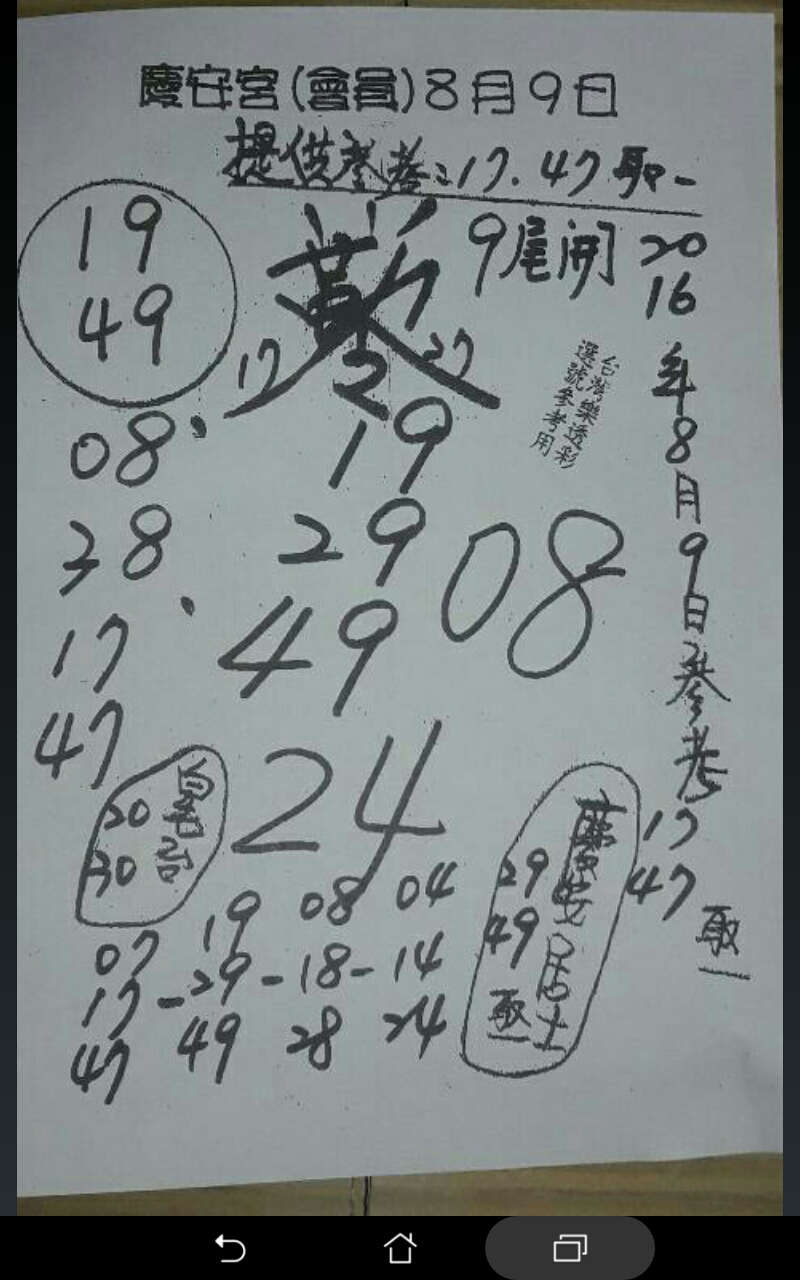 慶安宮(會員)8月9日
提供參考:17.47取一
19
49
9尾開
17
2
27
19
29
49
08
台灣樂透彩
選號參考用
2016年8月9日參考
17
47
取一
08
38
17
47
24
20
30
慶安居士
29
49
取一
07 19 08 04
17-29-18-14
47 49 28 24